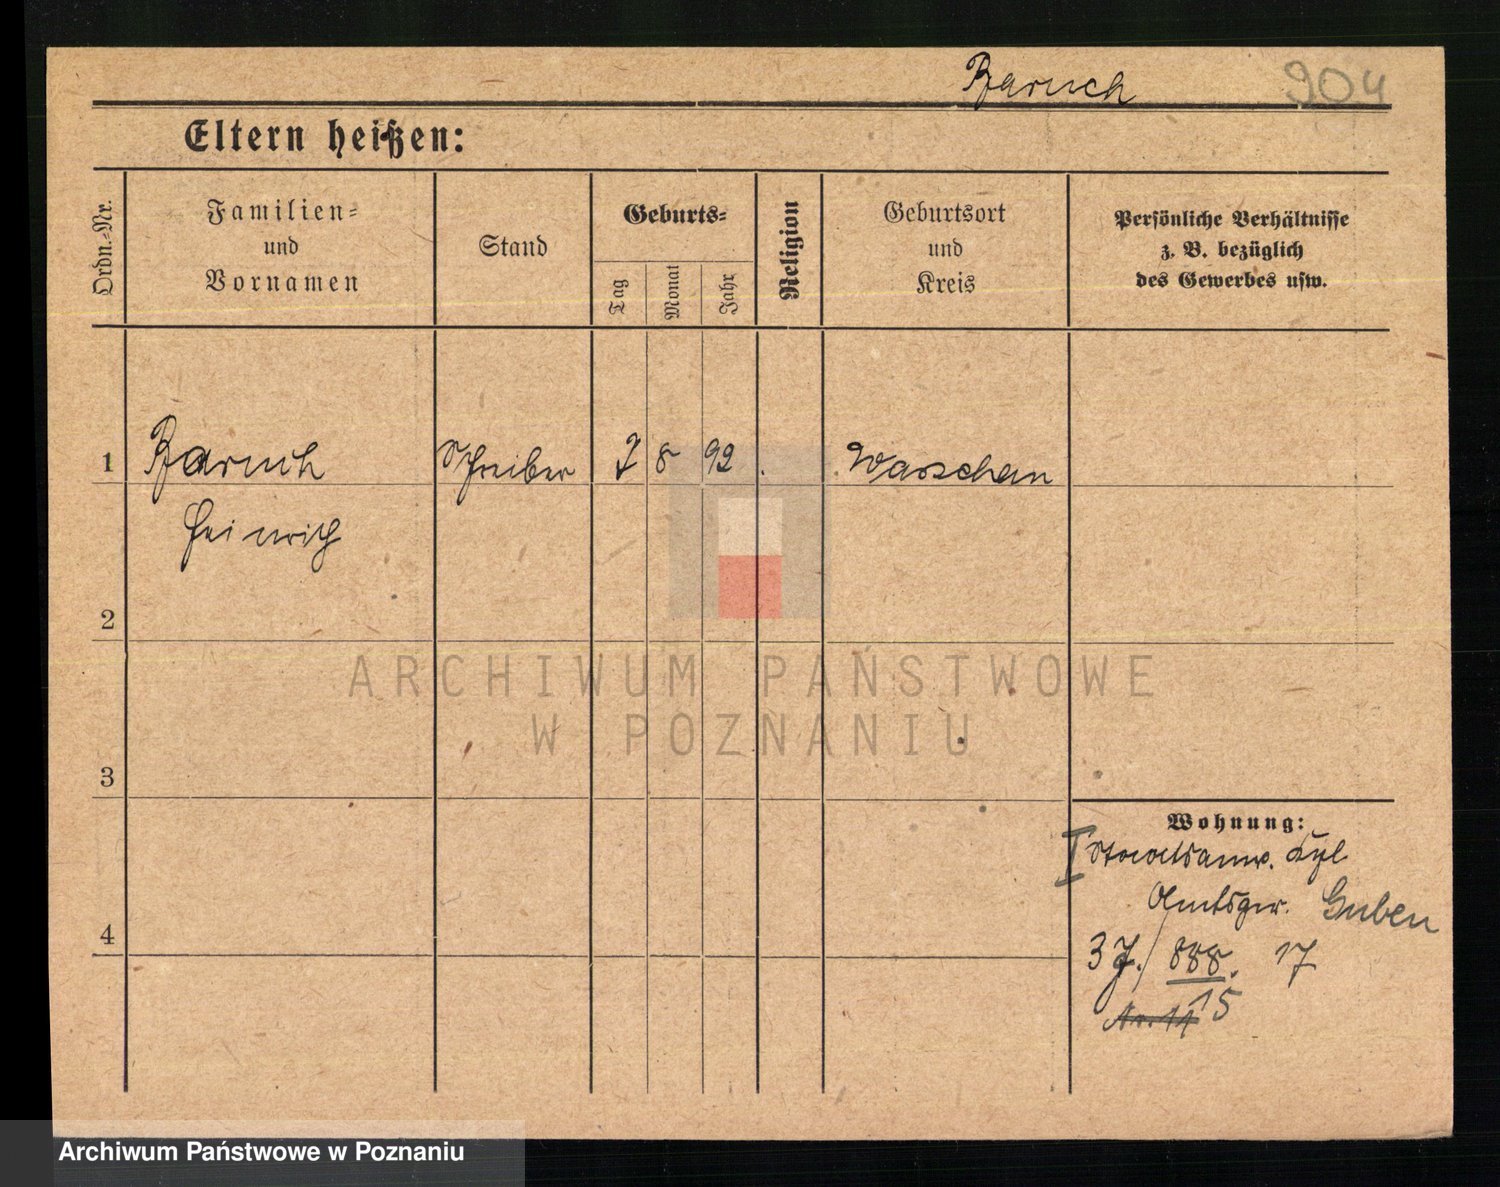 Baruch 904
Eltern heißen:
Ordn.-Nr.
Familien-
und
Vornamen
Stand
Geburts-
Tag
Monat
Jahr
Religion
Geburtsort
und
Kreis
Persönliche Verhältnisse
z. B. bezüglich
des Gewerbes usw.
1 Baruch Schreiber 8 92
Heinrich
2
3
4
Wohnung:
I Staatsanw.
Amtsger. Guben
3 J./ 888. 17
15
ARCHIWUM PAŃSTWOWE
W POZNANIU
Archiwum Państwowe w Poznaniu